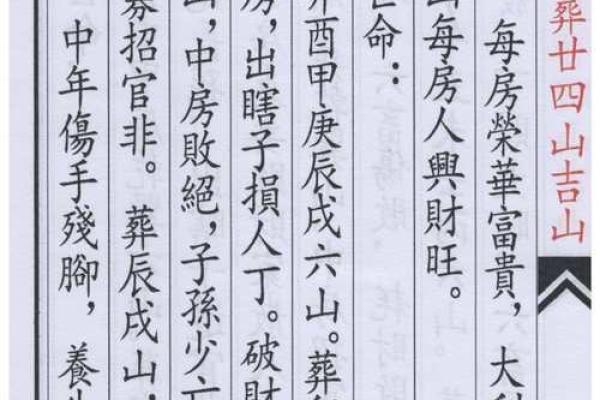 葬廿四山吉山
每房榮華富貴，大
山每房人興財旺。
命：
酉甲庚辰戌六山。葬
房，出瞎子損人丁。破財
山，中房敗絕，子孫少亡
招官非。葬辰戌山，
中年傷手殘腳，養